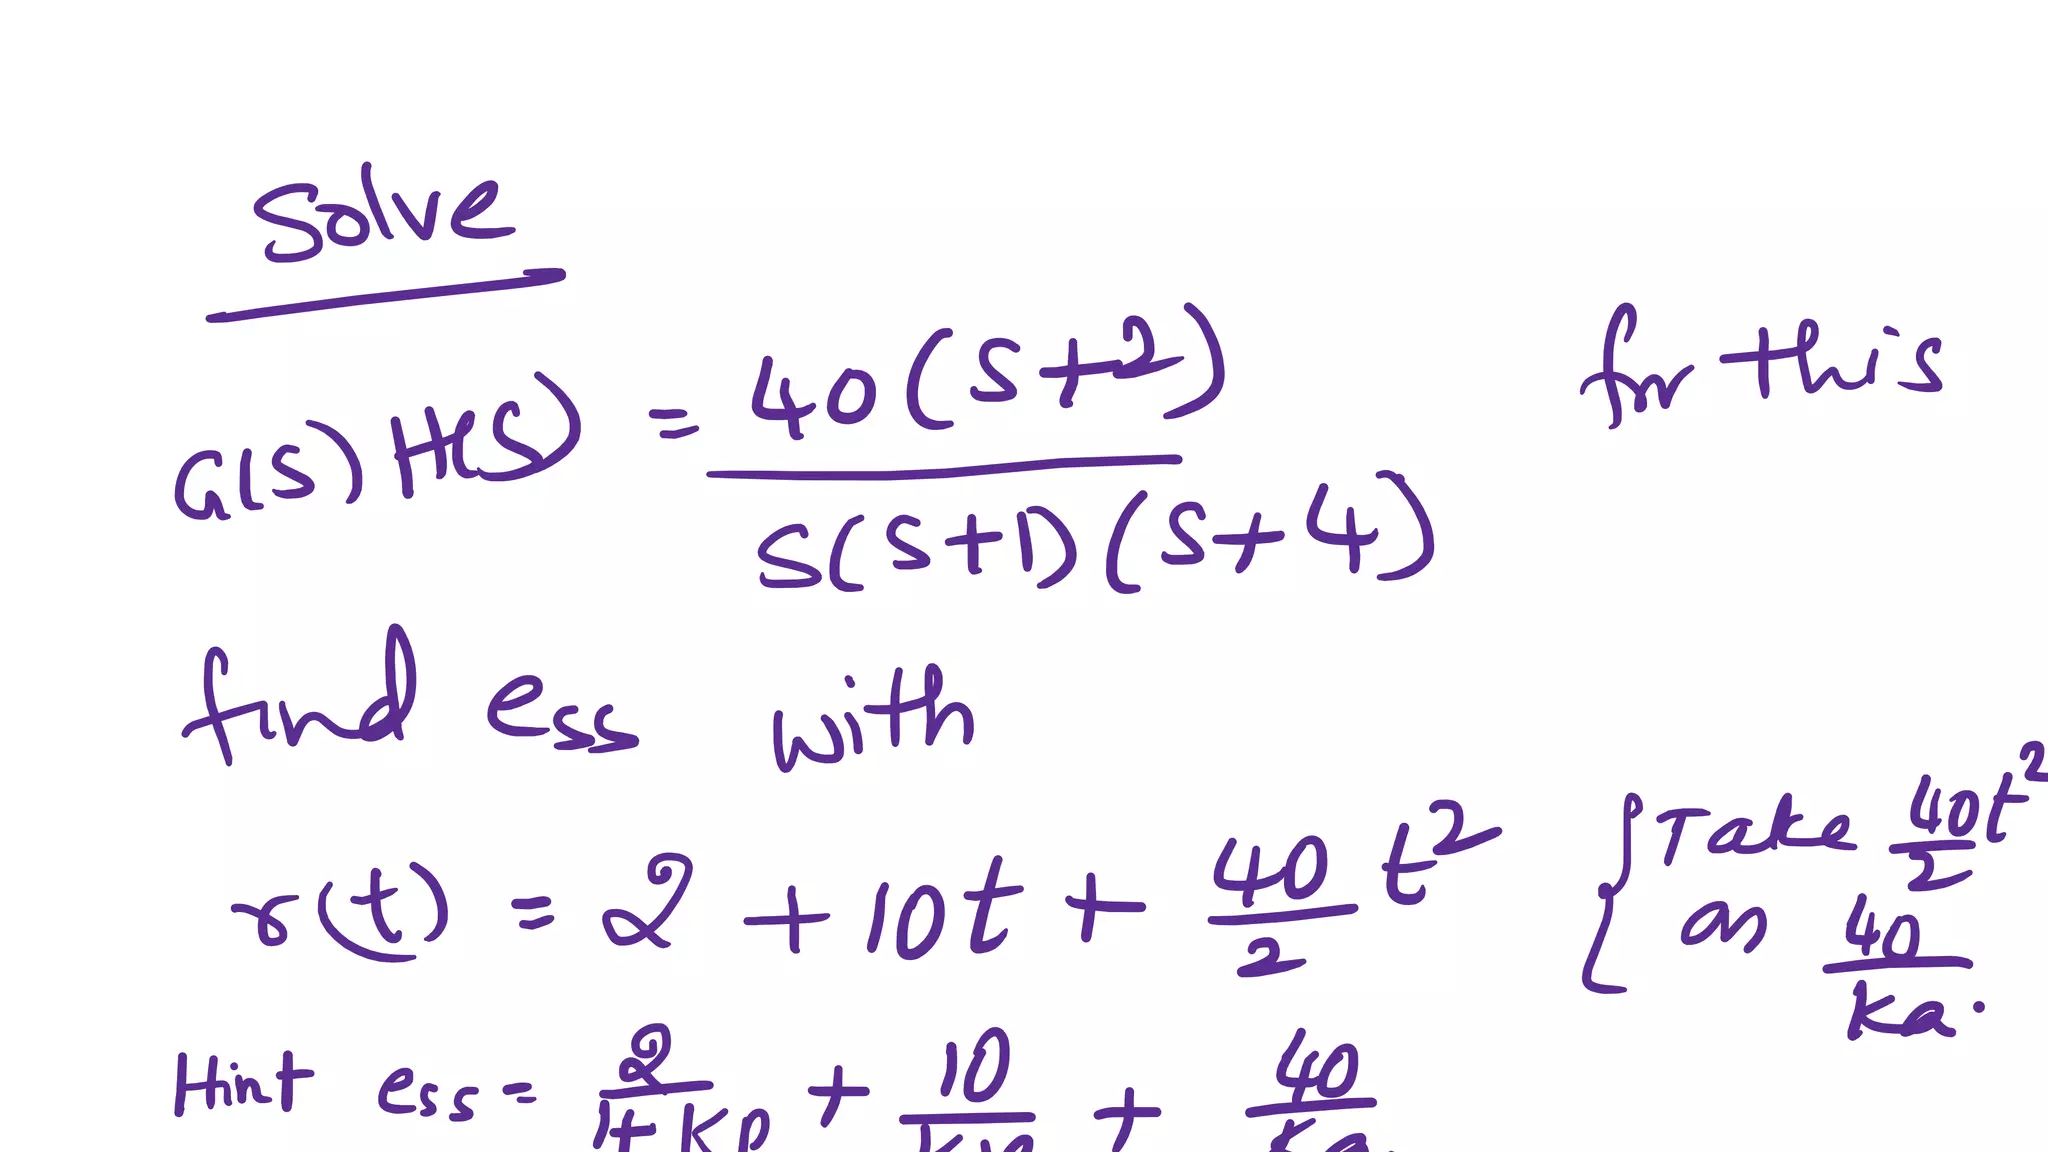 Solve
G(S) H(S) = 40(S+2) / S(S+1)(S+4) for this
find ess with
r(t) = 2 + 10t + 40/2 t² {Take 40t²/2
as 40/Ka.
Hint ess = 2/1+KP + 10/Kv + 40/Ka.